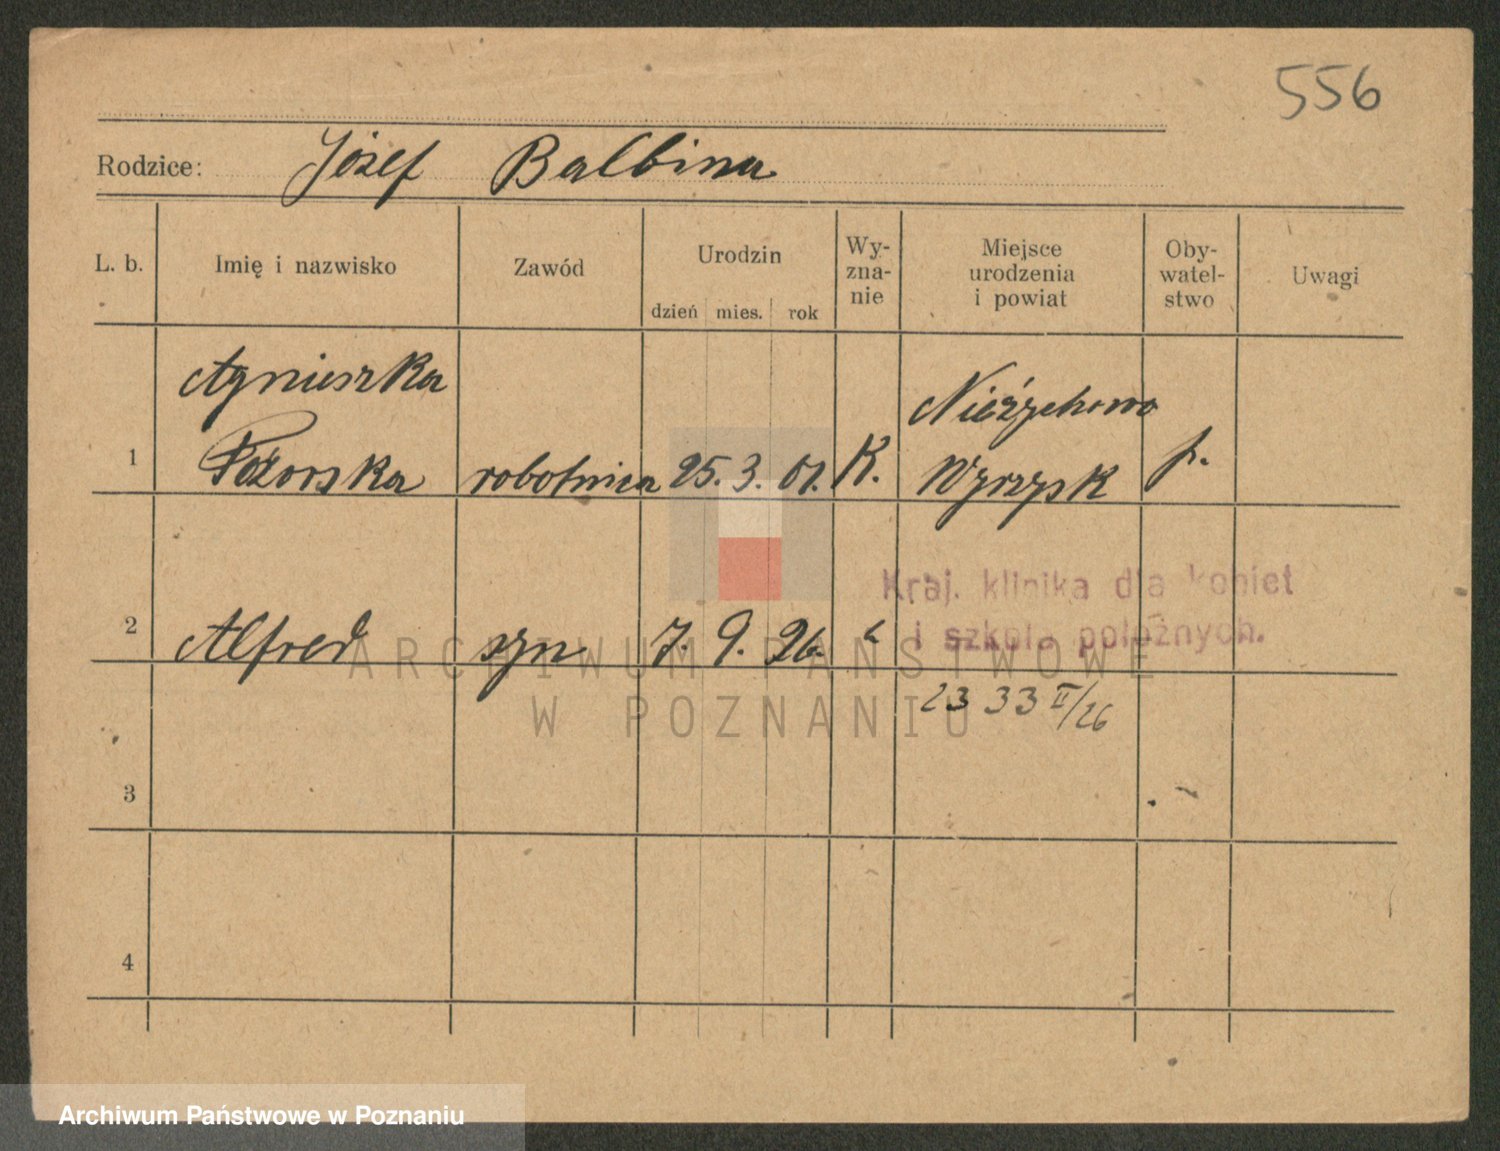 556
Rodzice: Józef Balbina
L. b. Imię i nazwisko Zawód Urodzin dzień mies. rok Wy-zna-nie Miejsce urodzenia i powiat Oby-watel-stwo Uwagi
Agnieszka Nieżychowo
1 robotnica 25. 3. 01. K. Wyrzysk p.
Kraj. klinika dla kobiet
2 Alfred syn 7. 9. 26. i szkoła położnych.
23 33 II/26
3
4
ARCHIWUM PAŃSTWOWE
W POZNANIU
Archiwum Państwowe w Poznaniu